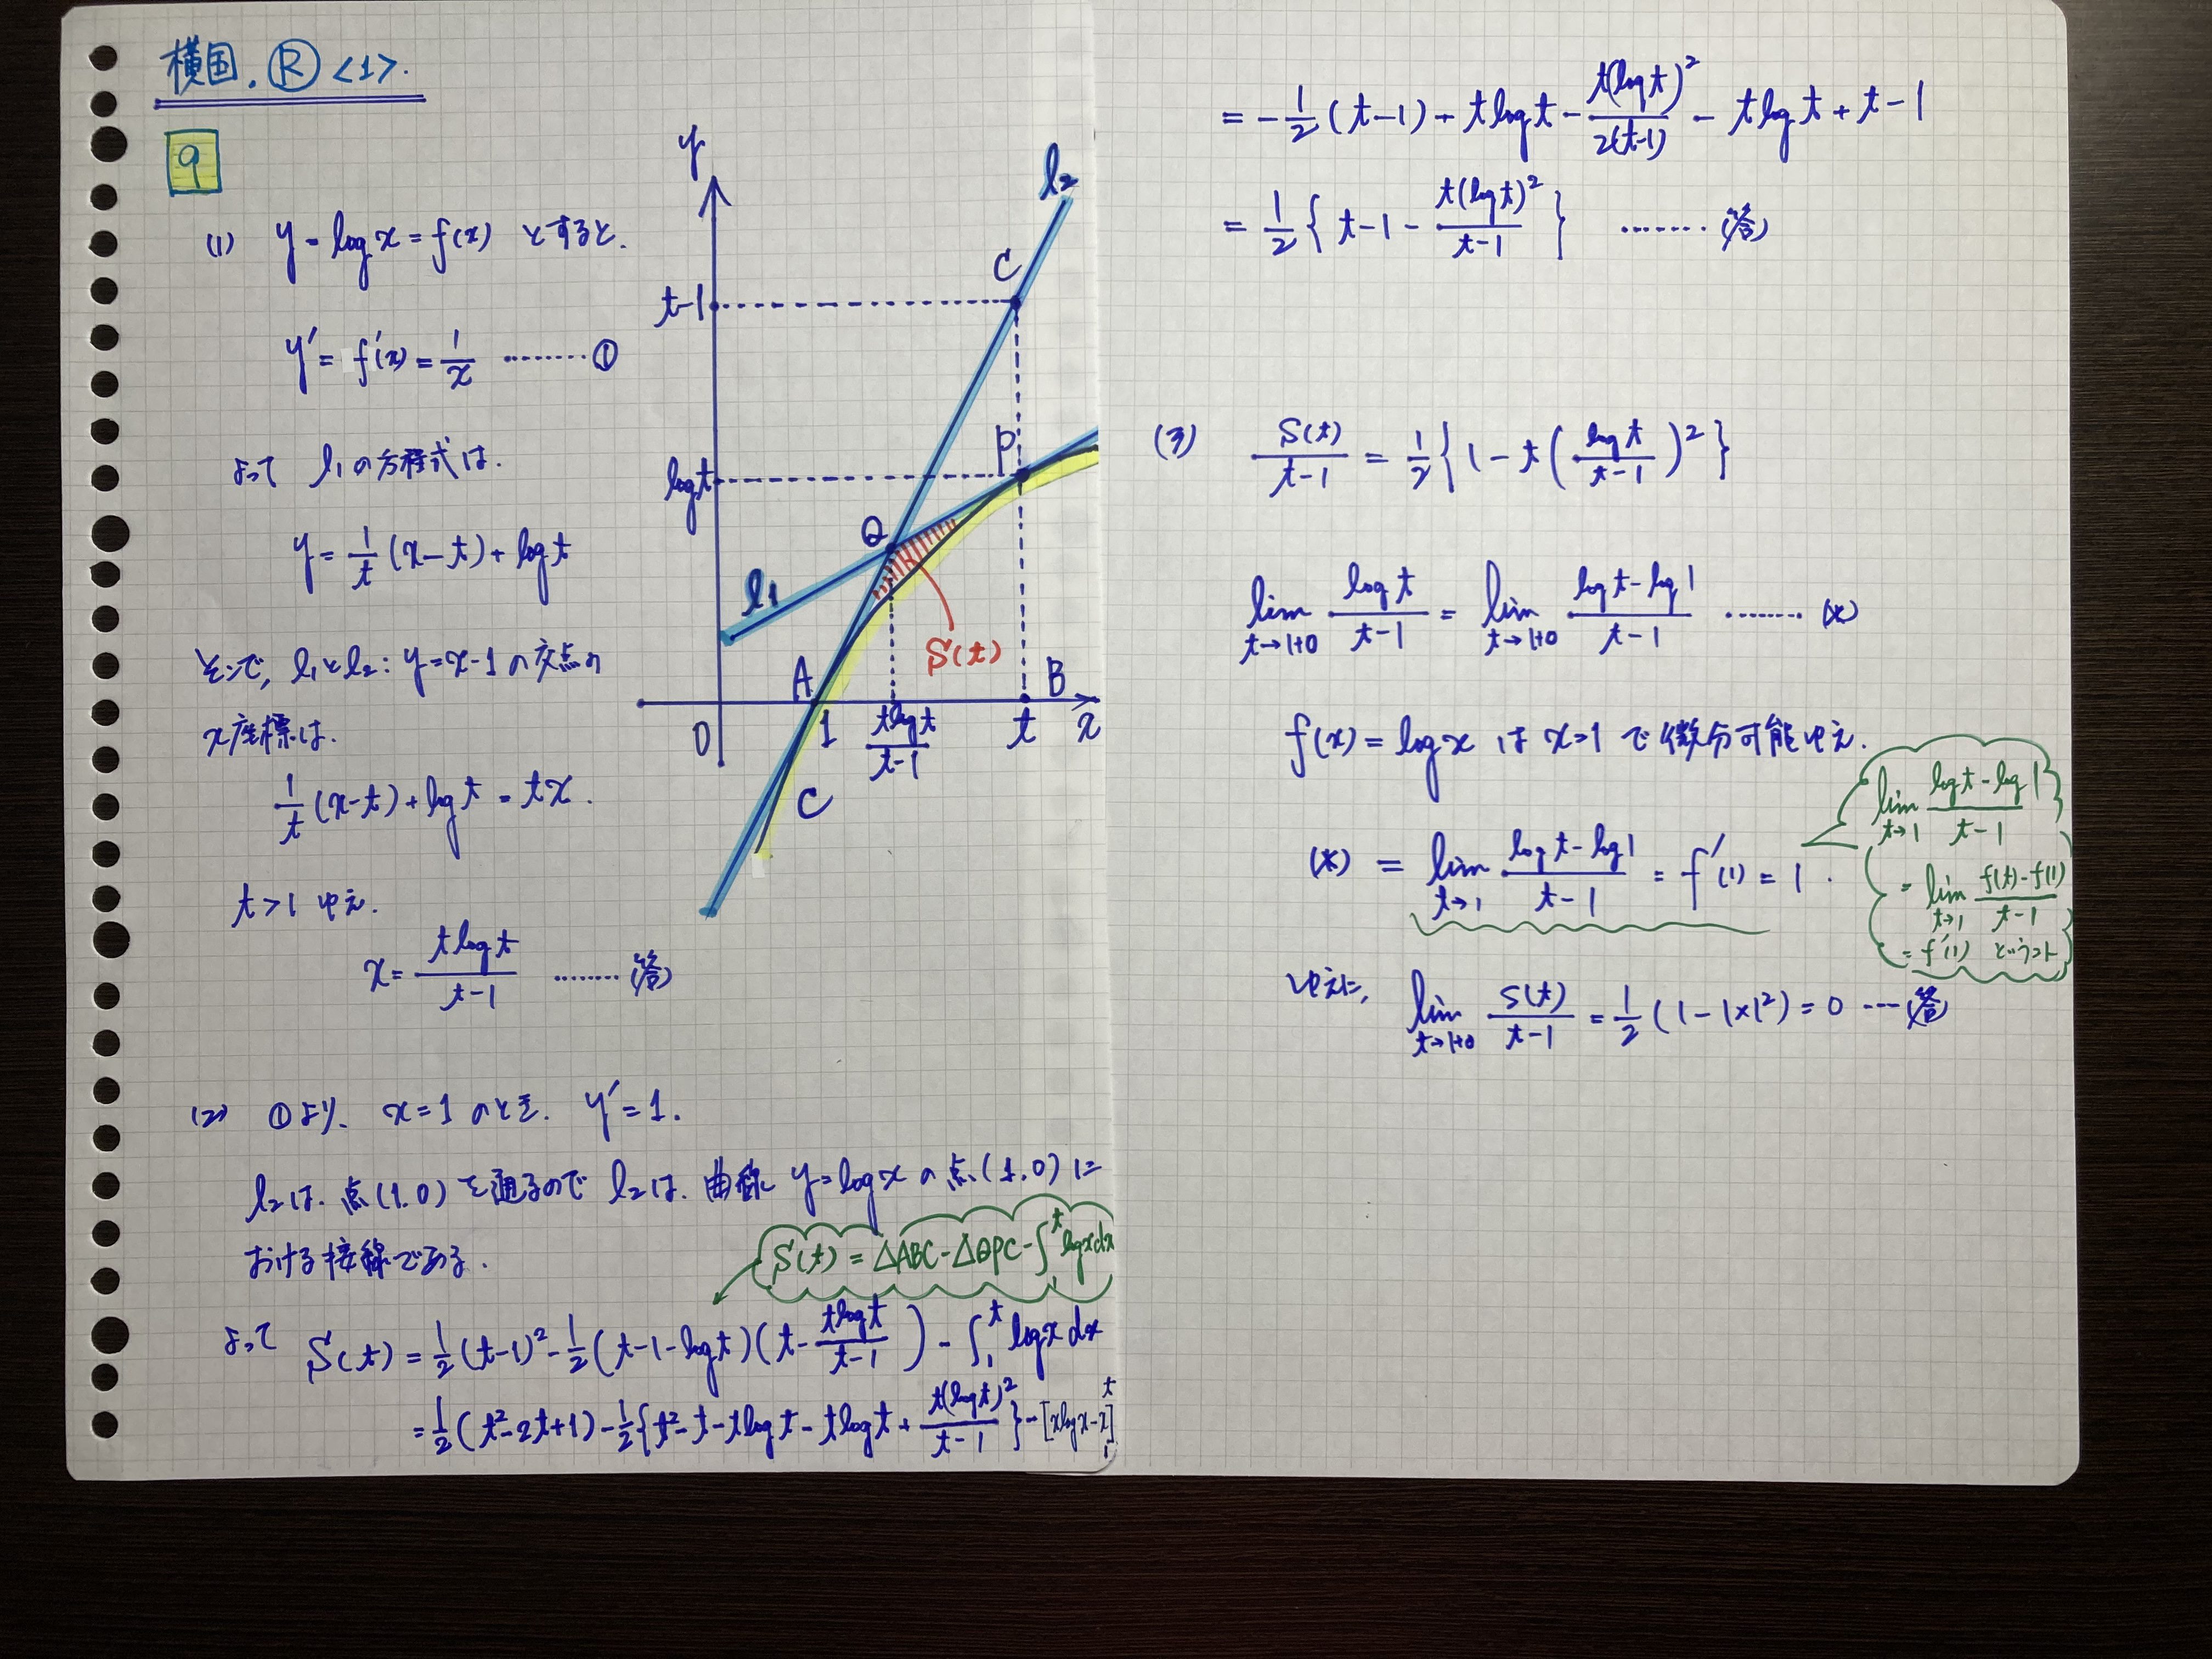 横国. Ⓡ <1>.
9
(1) y = log x = f(x) とすると.
y′ = f′(x) = 1/x ········ ①
よって l₁の方程式は.
y = 1/t (x − t) + log t
そこで, l₁とl₂: y = x − 1 の交点の
x座標は.
1/t (x − t) + log t = tx.
t > 1 ゆえ.
x = t log t / (t − 1) ········ (答)
y
l₂
C
t−1
P
log t
Q
l₁
S(t)
A
B
O
1
t log t / (t−1)
t
x
C
(2) ①より、 x = 1 のとき. y′ = 1.
l₂は. 点(1.0) を通るので l₂は. 曲線 y = log x の点(1.0) に
おける接線である.
S(t) = △ABC − △QPC − ∫₁ᵗ log x dx
よって S(t) = 1/2 (t−1)² − 1/2 (t−1−log t)(t − t log t / (t−1)) − ∫₁ᵗ log x dx
= 1/2 (t² − 2t + 1) − 1/2 {t² − t − t log t − t log t + t(log t)² / (t−1)} − [x log x − x]₁ᵗ
= −1/2 (t−1) + t log t − t(log t)² / 2(t−1) − t log t + t − 1
= 1/2 { t − 1 − t(log t)² / (t−1) } ········ (答)
(3) S(t) / (t−1) = 1/2 { 1 − t ( log t / (t−1) )² }
lim t→1+0 log t / (t−1) = lim t→1+0 (log t − log 1) / (t−1) ········ (*)
f(x) = log x は x=1 で微分可能ゆえ.
(*) = lim t→1 (log t − log 1) / (t−1) = f′(1) = 1.
lim t→1 (log t − log 1) / (t−1)
= lim t→1 (f(t) − f(1)) / (t−1)
= f′(1) ということ
ゆえに, lim t→1+0 S(t) / (t−1) = 1/2 (1 − 1×1²) = 0 ···· (答)